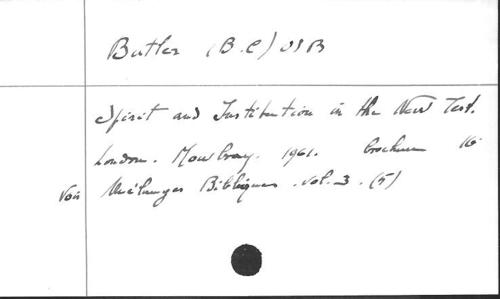 Butler (B.C) OSB
Spirit and Institution in the New Test.
London. Mowbray. 1961. brochure 16
Voir Mélanges Bibliques. vol. 3. (5)